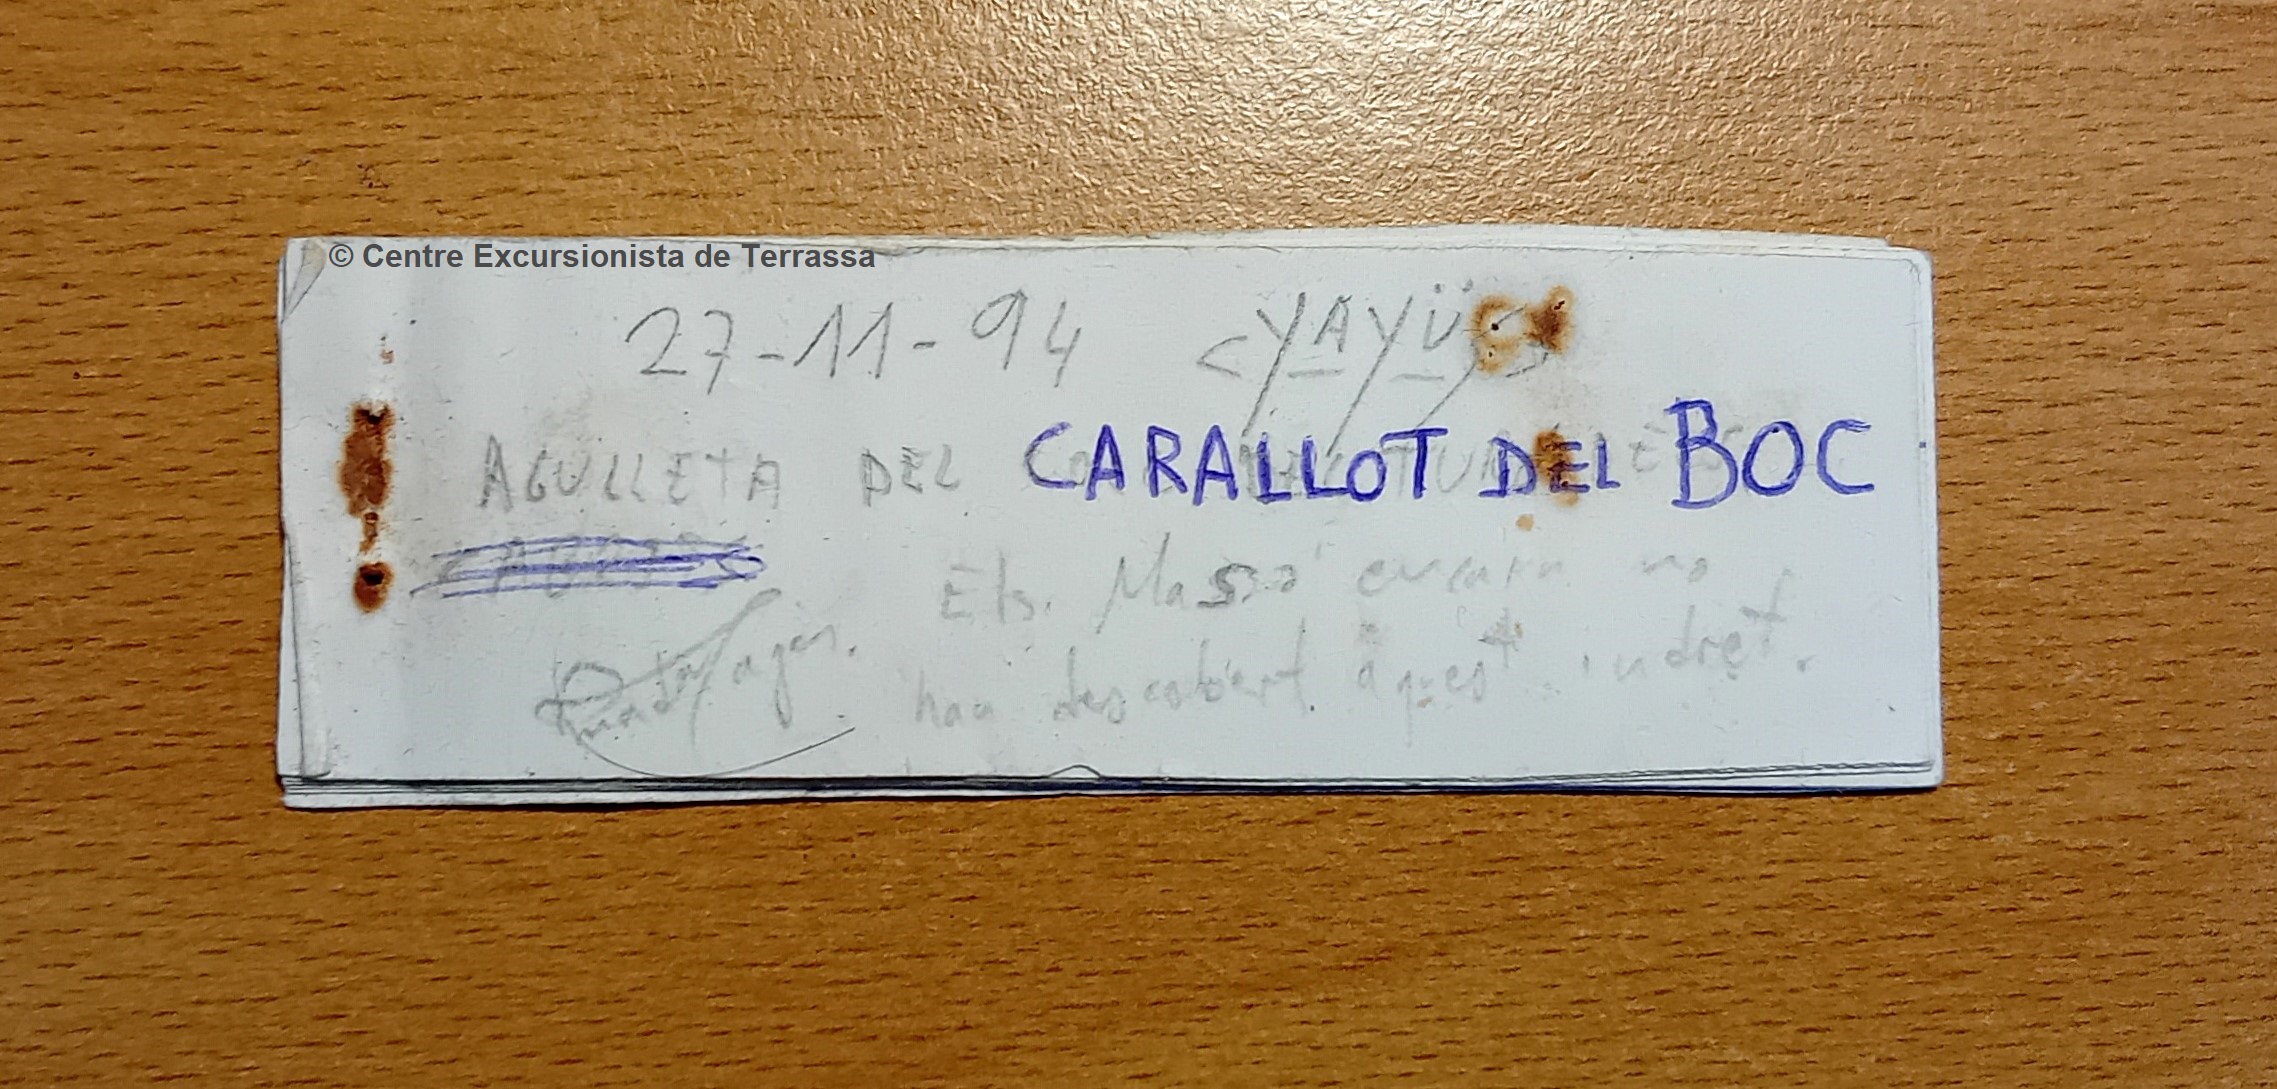 © Centre Excursionista de Terrassa
27-11-94 <YAYÜS>
AGULLETA DEL CARALLOT DEL BOC
Els. Massó encara no
han descobert aquest indret.